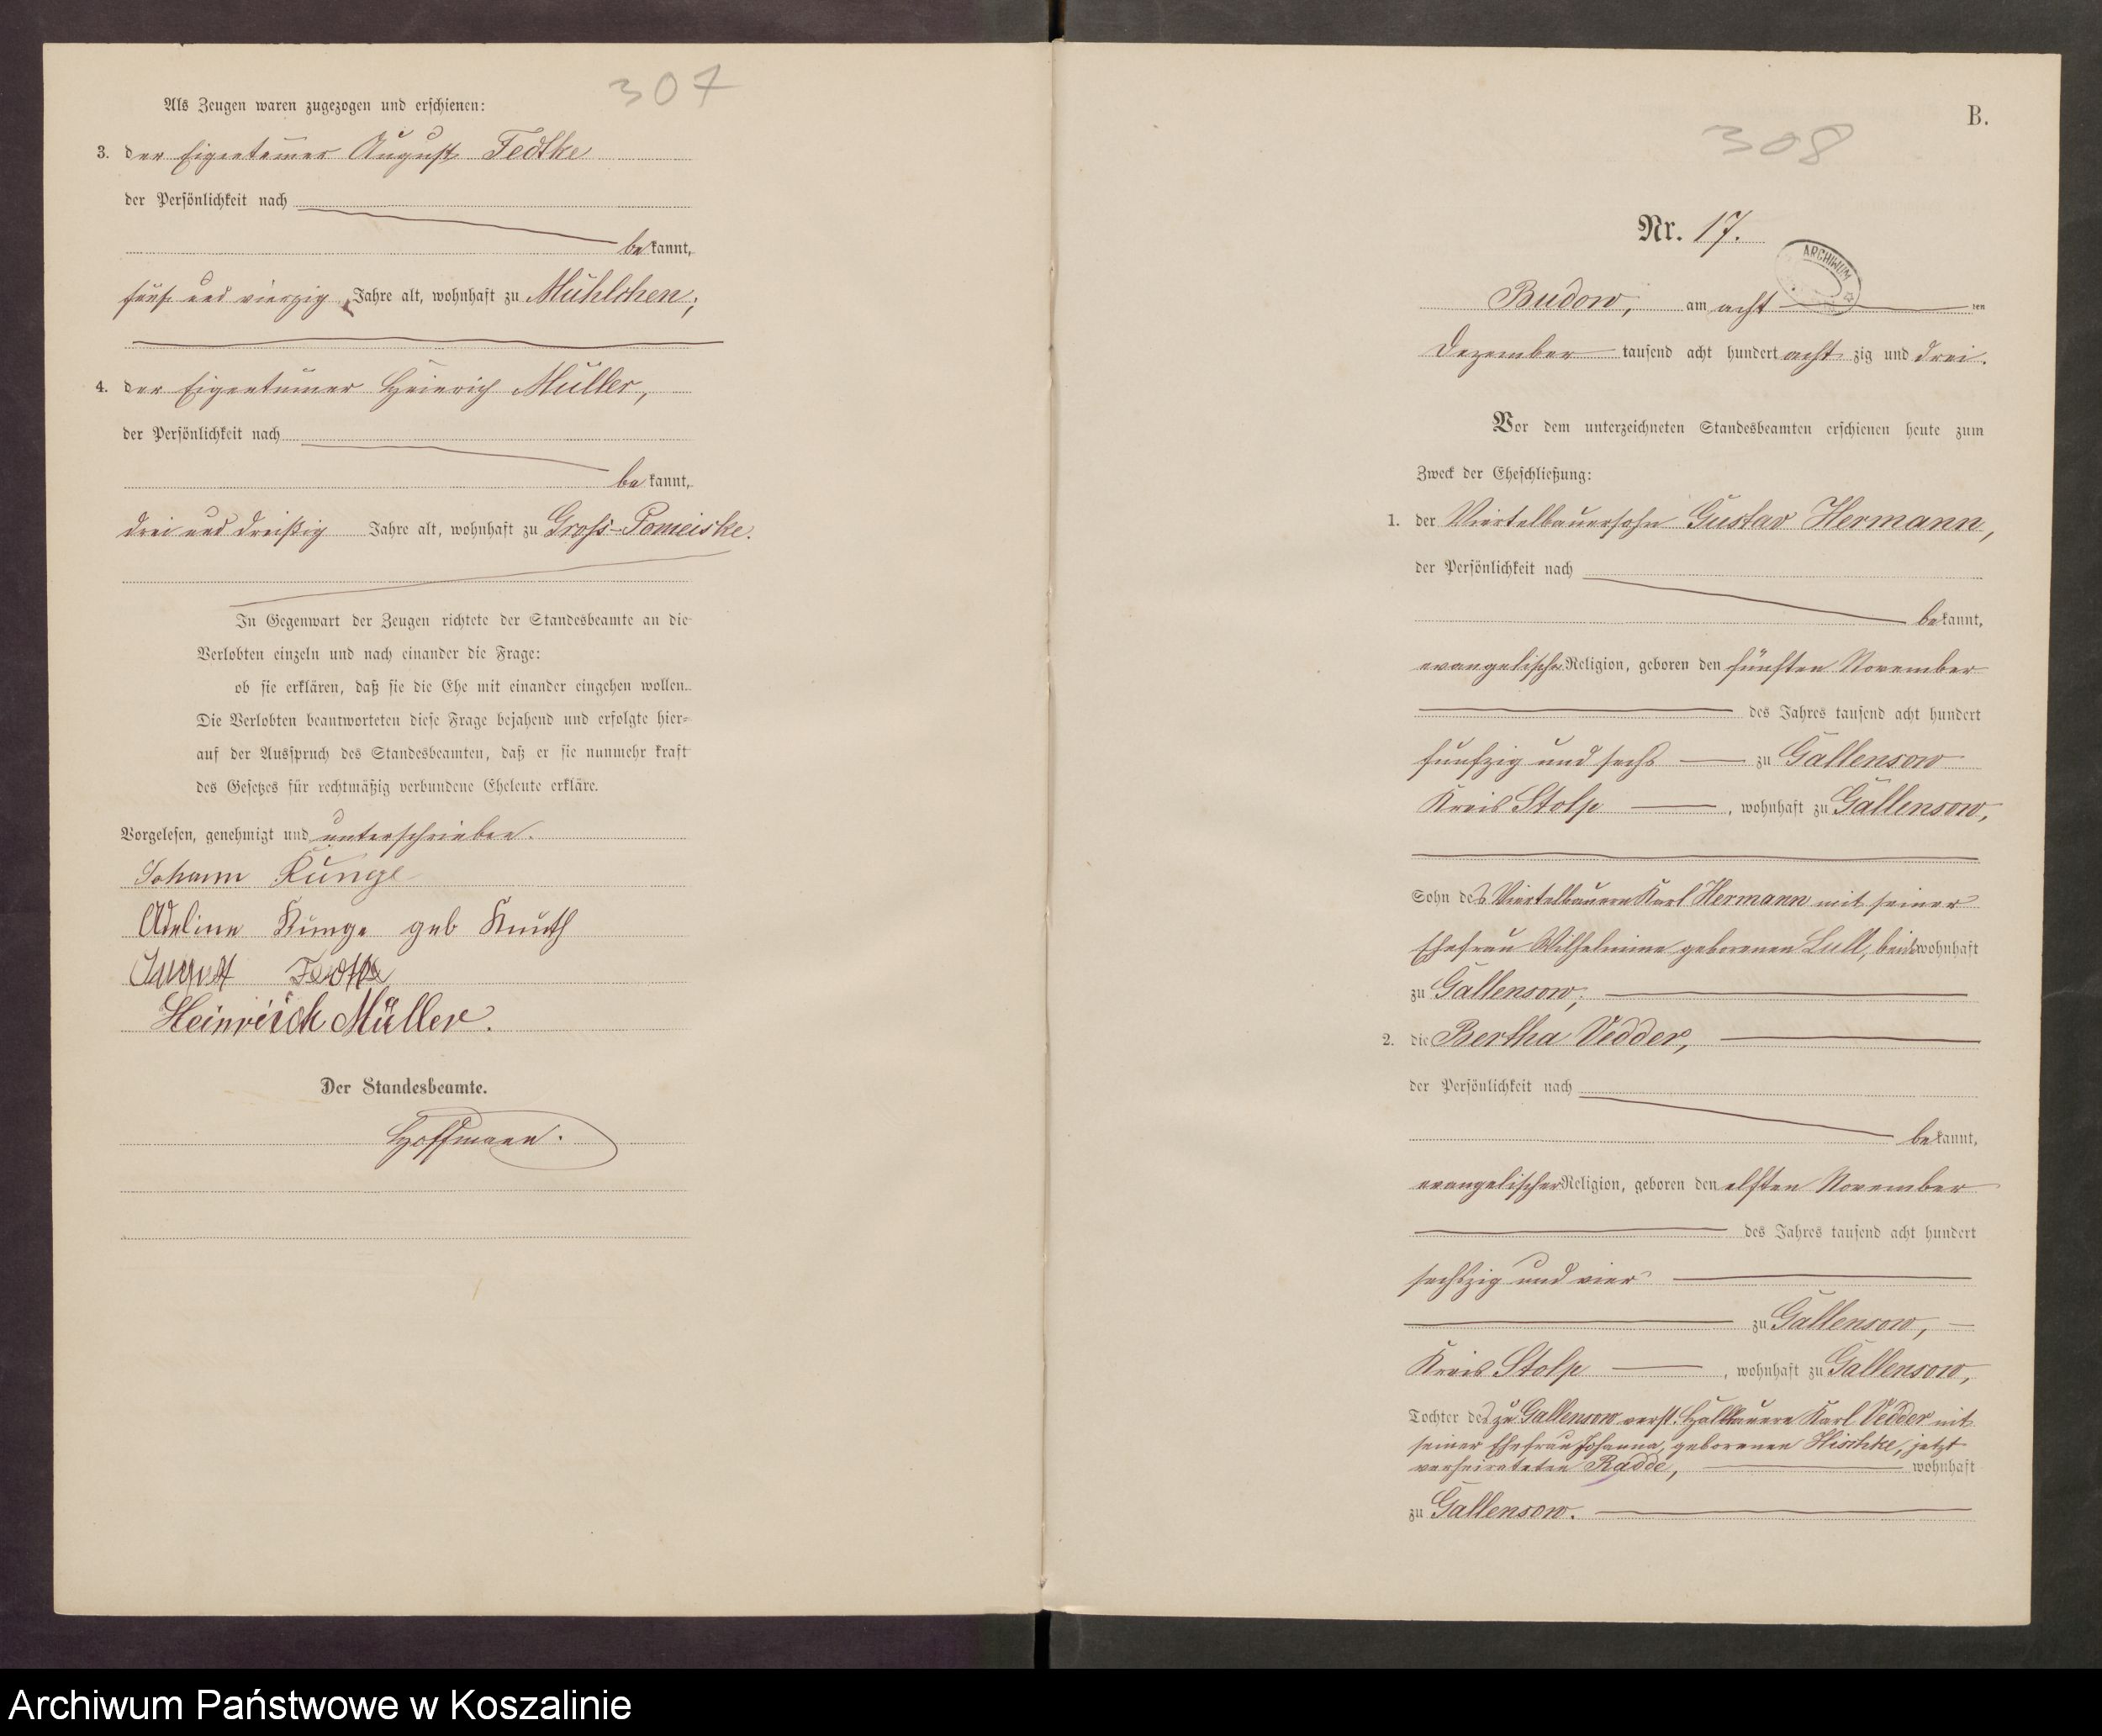 307
Als Zeugen waren zugezogen und erschienen:
3. der Eigentümer August Fedtke
der Persönlichkeit nach
bekannt,
fünf und vierzig Jahre alt, wohnhaft zu Mühlchen;
4. der Eigentümer Heinrich Müller,
der Persönlichkeit nach
bekannt,
drei und dreißig Jahre alt, wohnhaft zu Gross-Pomeiske.
In Gegenwart der Zeugen richtete der Standesbeamte an die
Verlobten einzeln und nach einander die Frage:
ob sie erklären, daß sie die Ehe mit einander eingehen wollen.
Die Verlobten beantworteten diese Frage bejahend und erfolgte hier-
auf der Ausspruch des Standesbeamten, daß er sie nunmehr kraft
des Gesetzes für rechtmäßig verbundene Eheleute erkläre.
Vorgelesen, genehmigt und unterschrieben.
Johann Kunge
Adeline Kunge geb Knuth
August Fedtke
Heinreich Müller.
Der Standesbeamte.
Hoffmann.
B.
308
Nr. 17.
ARCHIWUM
Budow, am acht ten
Dezember tausend acht hundert acht zig und drei.
Vor dem unterzeichneten Standesbeamten erschienen heute zum
Zweck der Eheschließung:
1. der Viertelbauersohn Gustav Hermann,
der Persönlichkeit nach
bekannt,
evangelischer Religion, geboren den fünften November
des Jahres tausend acht hundert
funfzig und sechs zu Gallensow
Kreis Stolp, wohnhaft zu Gallensow,
Sohn des Viertelbauern Karl Hermann mit seiner
Ehefrau Wilhelmine geborenen Lull, beide wohnhaft
zu Gallensow;
2. die Bertha Vedder,
der Persönlichkeit nach
bekannt,
evangelischer Religion, geboren den elften November
des Jahres tausend acht hundert
sechszig und vier
zu Gallensow,
Kreis Stolp, wohnhaft zu Gallensow,
Tochter des zu Gallensow verst. Halbbauern Karl Vedder mit
seiner Ehefrau Johanna, geborenen Hischke, jetzt
verheirateten Radde, wohnhaft
zu Gallensow.
Archiwum Państwowe w Koszalinie